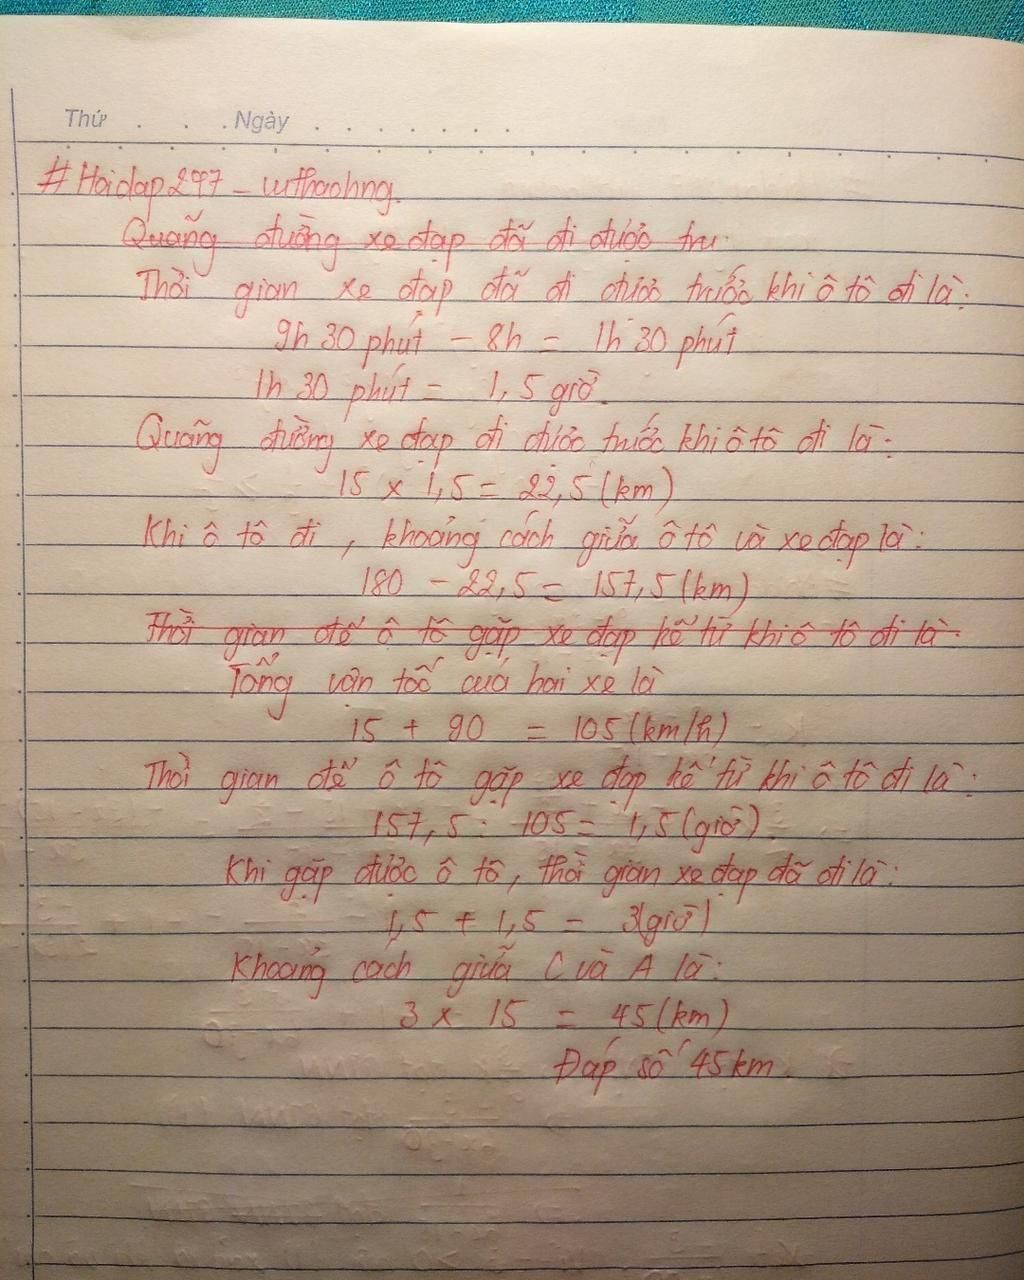 Thứ . . . Ngày . . . . . . .
#Hoidap247 - vuthaohng.
Quãng đường xe đạp đã đi được trư
Thời gian xe đạp đã đi được trước khi ô tô đi là:
9h 30 phút - 8h = 1h 30 phút
1h 30 phút = 1,5 giờ.
Quãng đường xe đạp đi được trước khi ô tô đi là:
15 x 1,5 = 22,5 (km)
Khi ô tô đi, khoảng cách giữa ô tô và xe đạp là:
180 - 22,5 = 157,5 (km)
Thời gian để ô tô gặp xe đạp kể từ khi ô tô đi là:
Tổng vận tốc của hai xe là
15 + 90 = 105 (km/h)
Thời gian để ô tô gặp xe đạp kể từ khi ô tô đi là:
157,5 : 105 = 1,5 (giờ).
Khi gặp được ô tô, thời gian xe đạp đã đi là:
1,5 + 1,5 = 3 (giờ)
Khoảng cách giữa C và A là:
3 x 15 = 45 (km)
Đáp số 45 km.